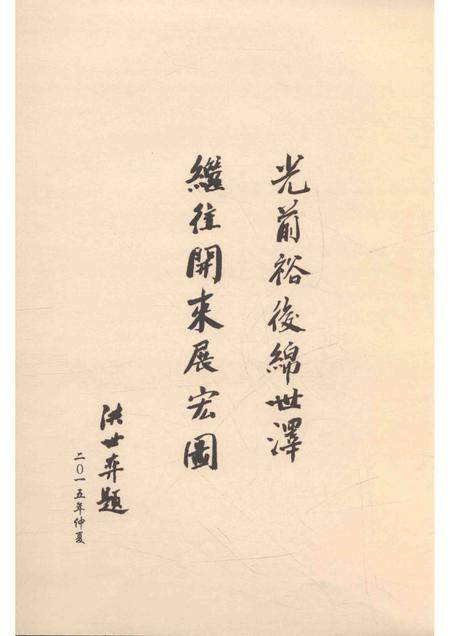 光前裕後綿世澤
繼往開來展宏圖
洪世奔題
二〇一五年仲夏